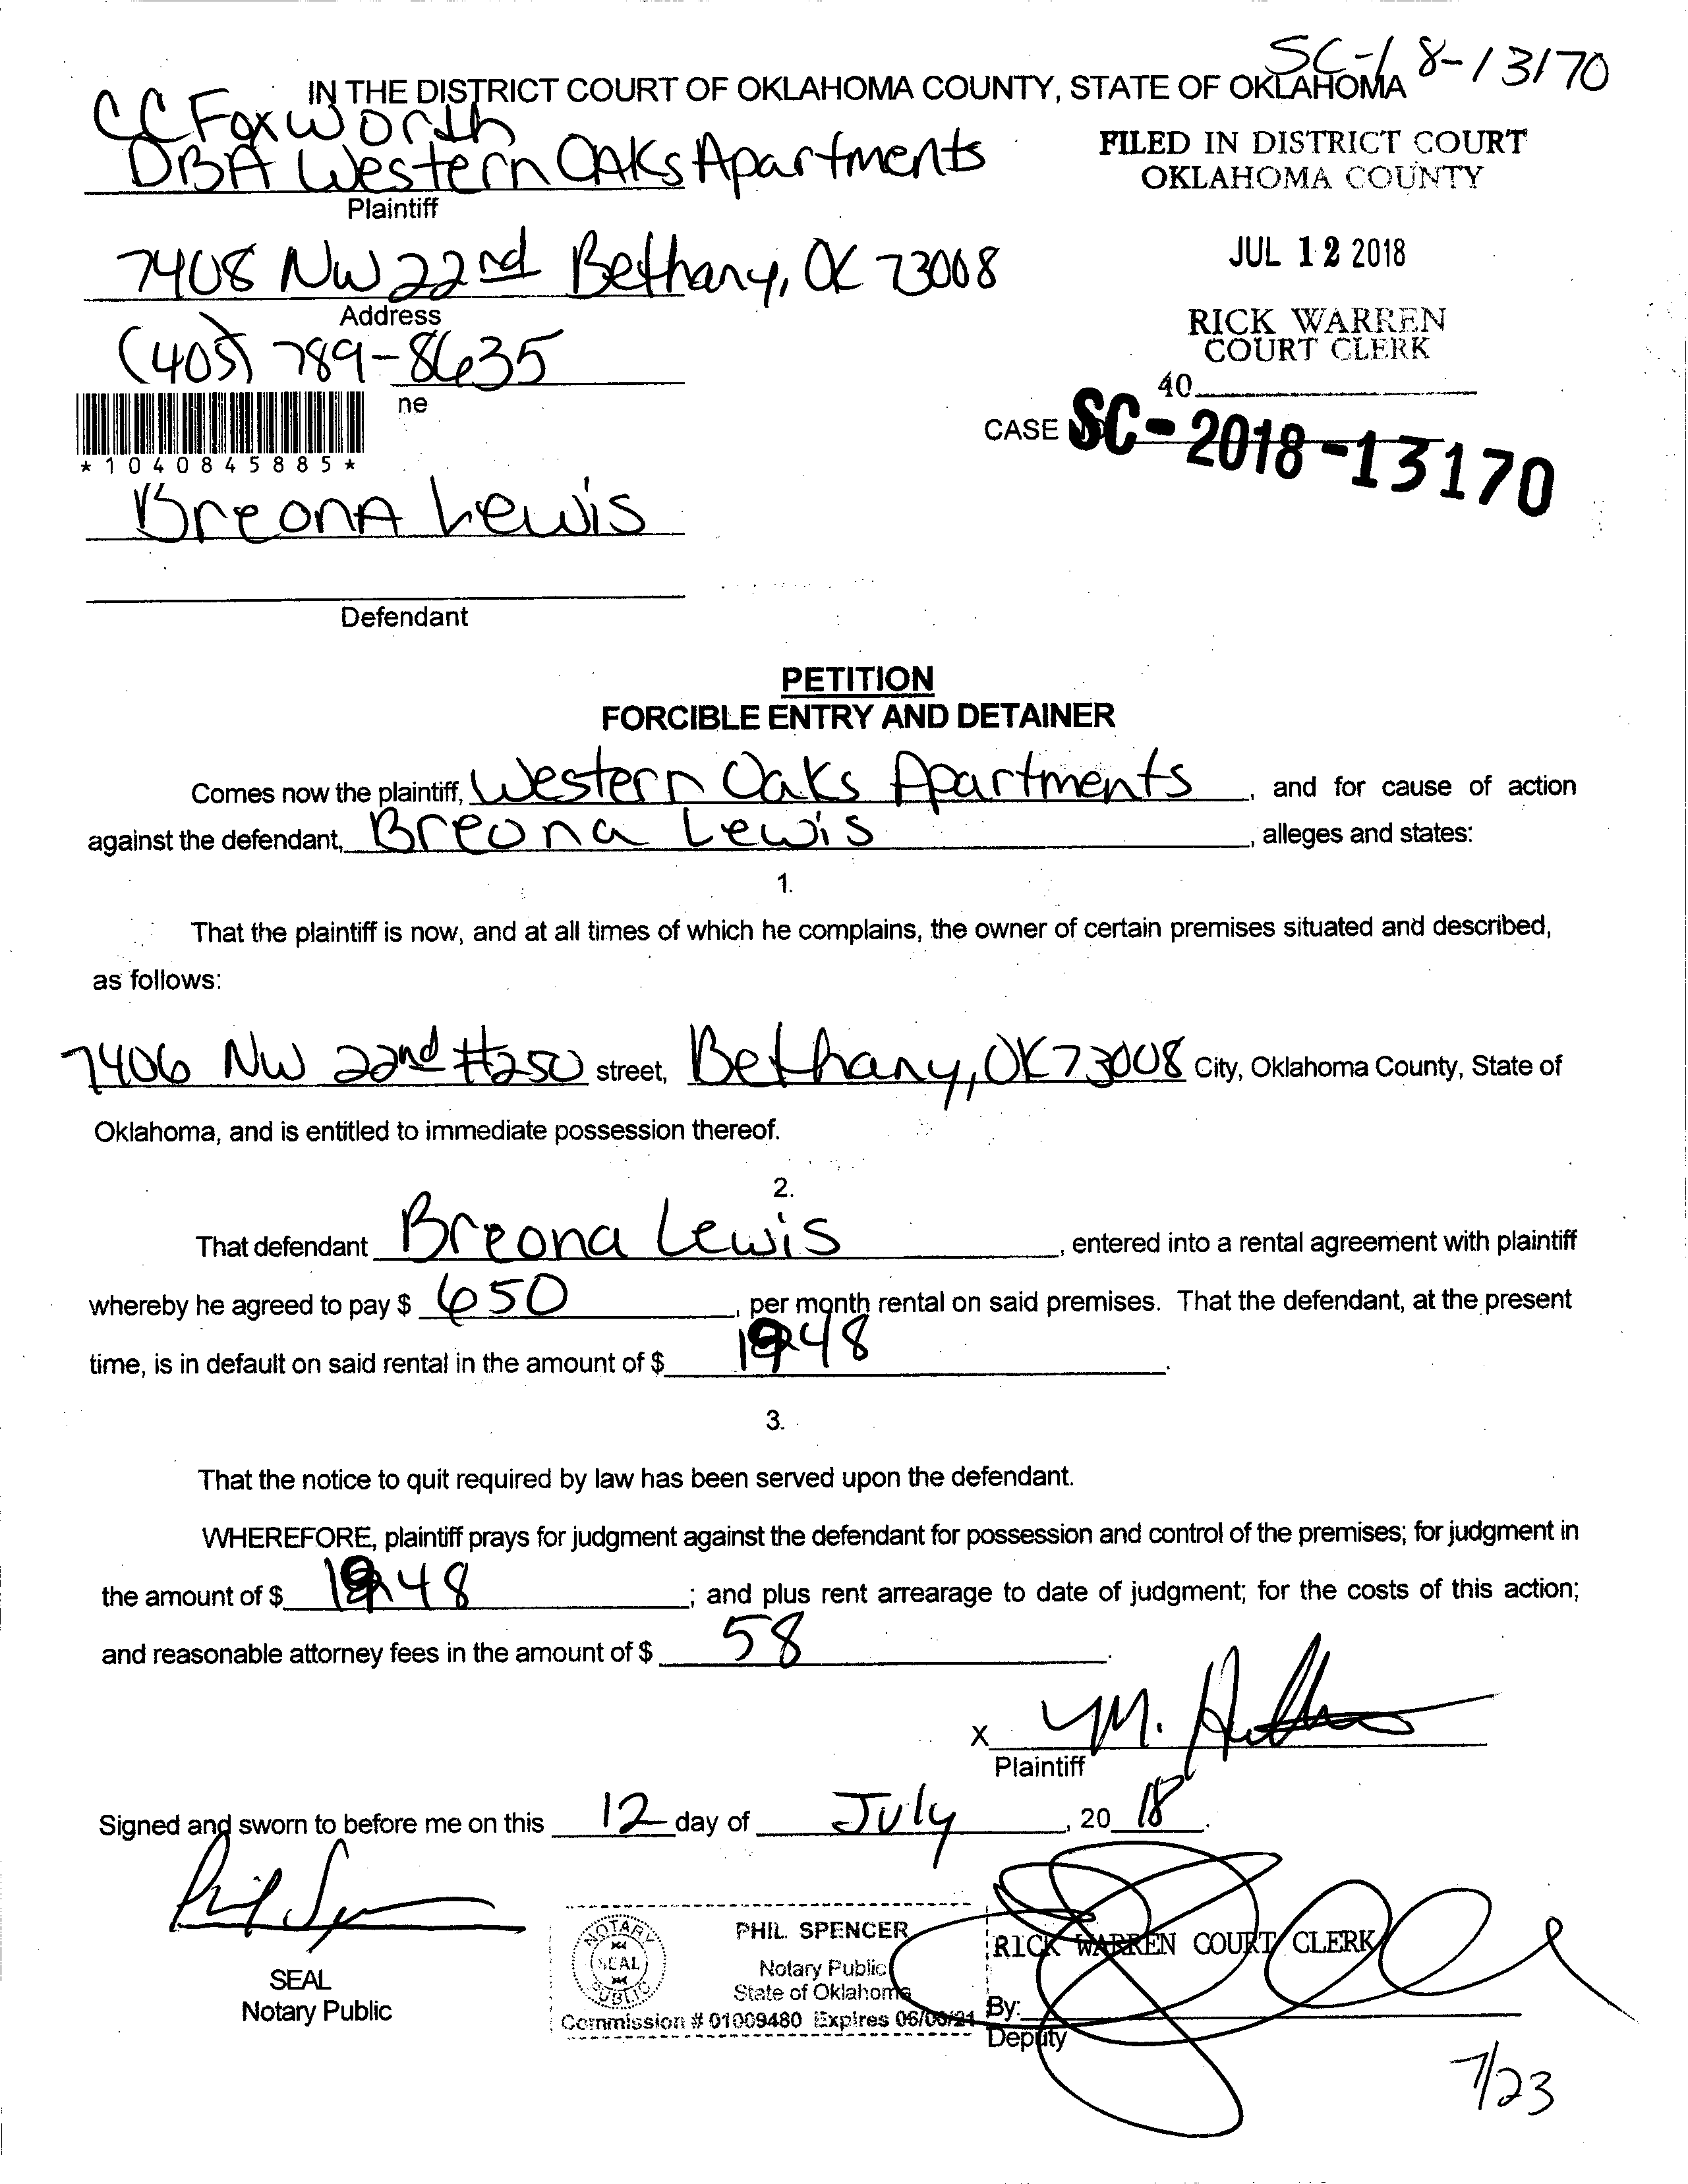 SC-18-13170
IN THE DISTRICT COURT OF OKLAHOMA COUNTY, STATE OF OKLAHOMA
CC Foxworth
DBA Western OAKs Apartments
Plaintiff
FILED IN DISTRICT COURT
OKLAHOMA COUNTY
7408 NW 22nd Bethany, OK 73008
Address
JUL 12 2018
(405) 789-8635
ne
RICK WARREN
COURT CLERK
40
CASE SC-2018-13170
*1040845885*
BreonA Lewis
Defendant
PETITION
FORCIBLE ENTRY AND DETAINER
Comes now the plaintiff, Western Oaks Apartments, and for cause of action
against the defendant, Breona Lewis, alleges and states:
1.
That the plaintiff is now, and at all times of which he complains, the owner of certain premises situated and described,
as follows:
7406 NW 22nd #250 street, Bethany, OK 73008 City, Oklahoma County, State of
Oklahoma, and is entitled to immediate possession thereof.
2.
That defendant Breona Lewis, entered into a rental agreement with plaintiff
whereby he agreed to pay $ 650, per month rental on said premises. That the defendant, at the present
time, is in default on said rental in the amount of $
3.
That the notice to quit required by law has been served upon the defendant.
WHEREFORE, plaintiff prays for judgment against the defendant for possession and control of the premises; for judgment in
the amount of $ ; and plus rent arrearage to date of judgment; for the costs of this action;
and reasonable attorney fees in the amount of $ 58.
X
Plaintiff
Signed and sworn to before me on this 12 day of July, 20 18.
SEAL
Notary Public
NOTARY
SEAL
PUBLIC
PHIL SPENCER
Notary Public
State of Oklahoma
Commission # 01009480 Expires
RICK WARREN COURT CLERK
By:
Deputy
7/23